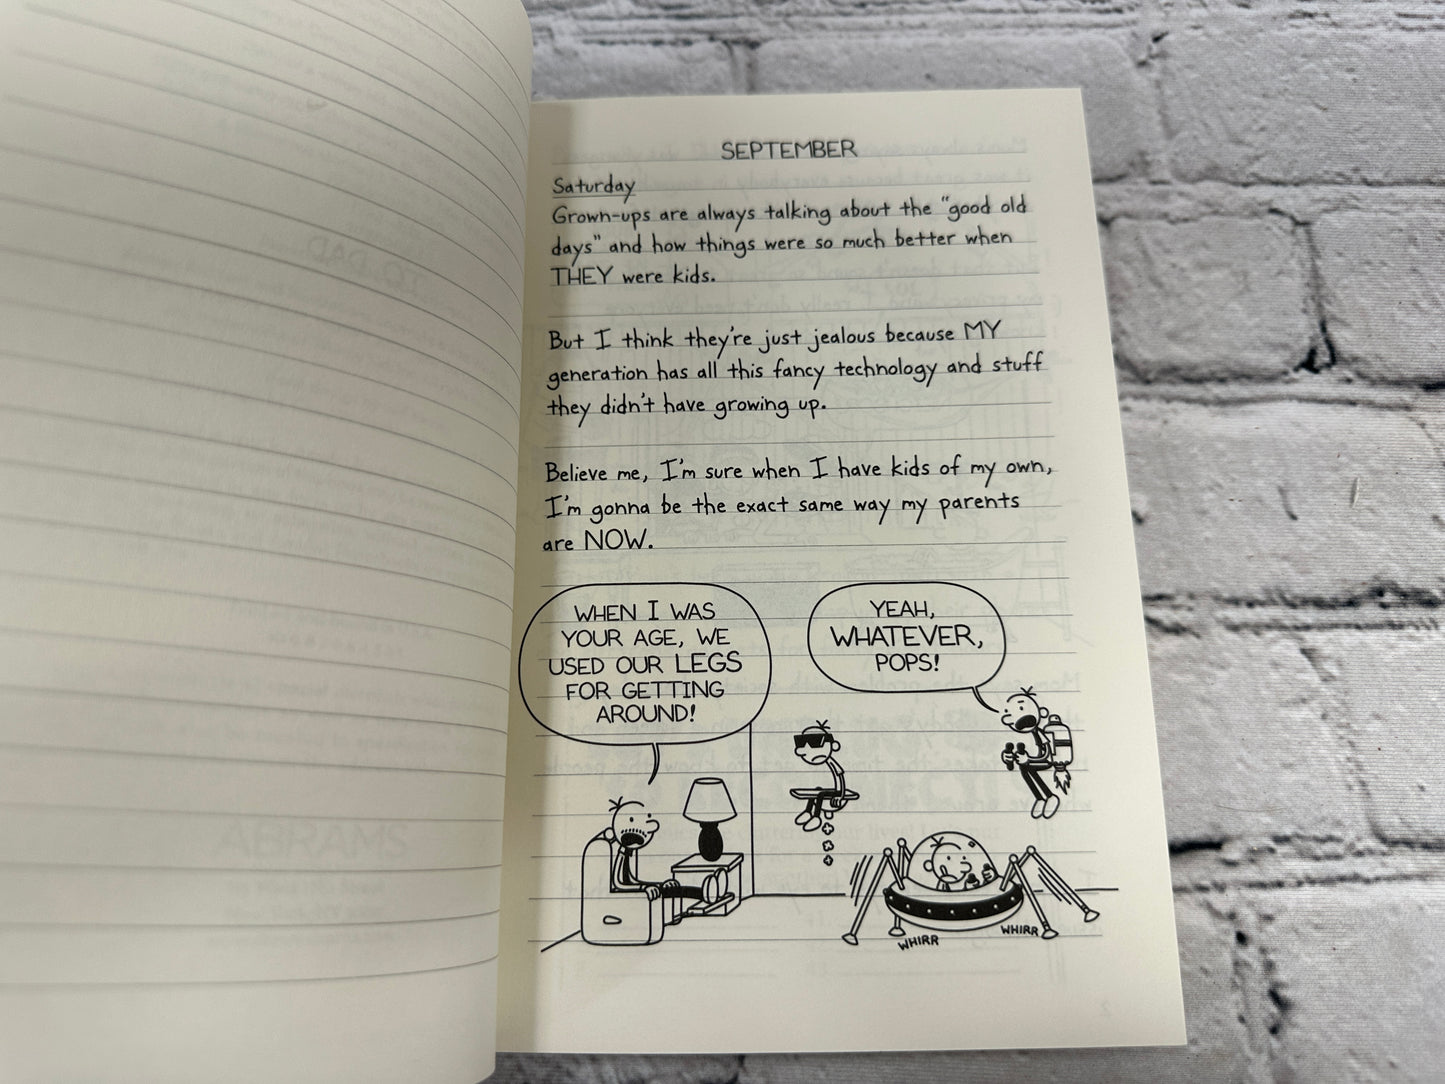 SEPTEMBER
Saturday
Grown-ups are always talking about the "good old
days" and how things were so much better when
THEY were kids.
But I think they're just jealous because MY
generation has all this fancy technology and stuff
they didn't have growing up.
Believe me, I'm sure when I have kids of my own,
I'm gonna be the exact same way my parents
are NOW.
WHEN I WAS
YOUR AGE, WE
USED OUR LEGS
FOR GETTING
AROUND!
YEAH,
WHATEVER,
POPS!
WHIRR
WHIRR
TO DAD
ABRAMS